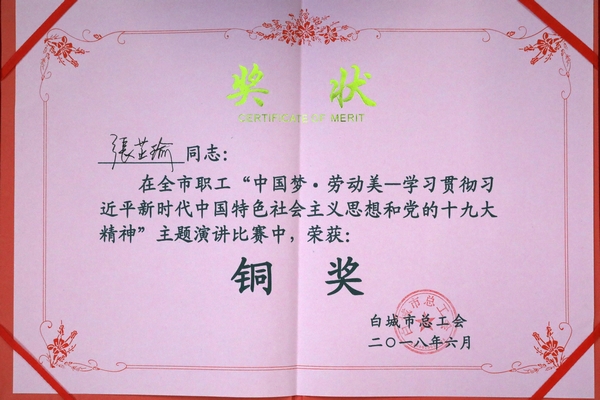 奖 状
CERTIFICATE OF MERIT
張芷瑜 同志：
在全市职工“中国梦·劳动美—学习贯彻习
近平新时代中国特色社会主义思想和党的十九大
精神”主题演讲比赛中，荣获：
铜 奖
白城市总工会
二〇一八年六月
白城市总工会